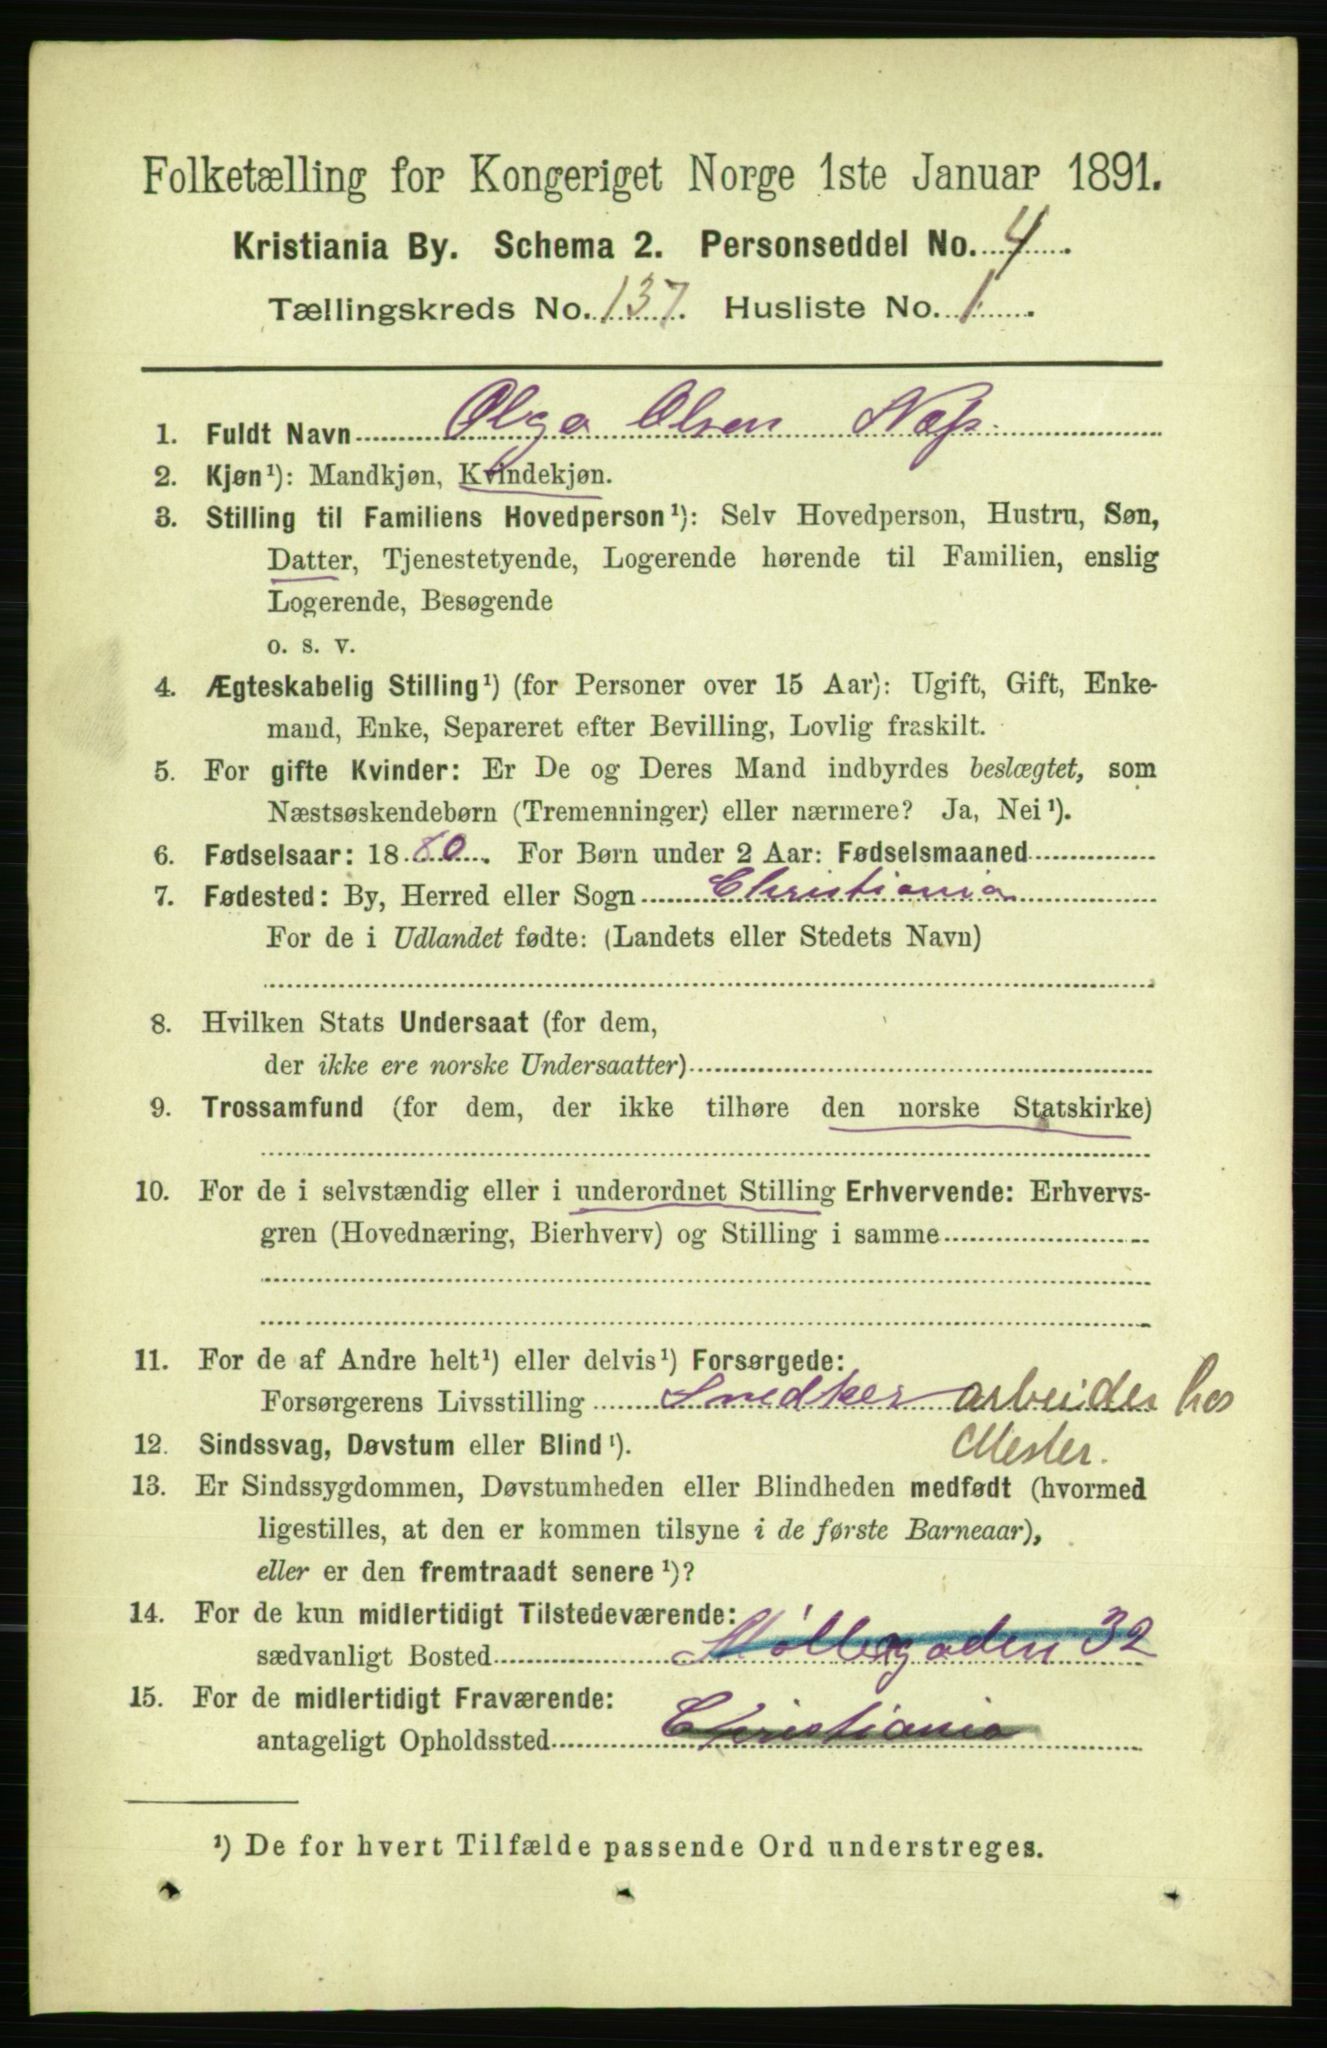 Folketælling for Kongeriget Norge 1ste Januar 1891.
Kristiania By. Schema 2. Personseddel No. 4.
Tællingskreds No. 137. Husliste No. 1.
1. Fuldt Navn Olga Olsen Næss.
2. Kjøn¹): Mandkjøn, Kvindekjøn.
3. Stilling til Familiens Hovedperson¹): Selv Hovedperson, Hustru, Søn,
Datter, Tjenestetyende, Logerende hørende til Familien, enslig
Logerende, Besøgende
o. s. v.
4. Ægteskabelig Stilling¹) (for Personer over 15 Aar): Ugift, Gift, Enke-
mand, Enke, Separeret efter Bevilling, Lovlig fraskilt.
5. For gifte Kvinder: Er De og Deres Mand indbyrdes beslægtet, som
Næstsøskendebørn (Tremenninger) eller nærmere? Ja, Nei¹).
6. Fødselsaar: 1880. For Børn under 2 Aar: Fødselsmaaned
7. Fødested: By, Herred eller Sogn Christiania
For de i Udlandet fødte: (Landets eller Stedets Navn)
8. Hvilken Stats Undersaat (for dem,
der ikke ere norske Undersaatter)
9. Trossamfund (for dem, der ikke tilhøre den norske Statskirke)
10. For de i selvstændig eller i underordnet Stilling Erhvervende: Erhvervs-
gren (Hovednæring, Bierhverv) og Stilling i samme
11. For de af Andre helt¹) eller delvis¹) Forsørgede:
Forsørgerens Livsstilling Snedker arbeider hos
12. Sindssvag, Døvstum eller Blind¹). Mester.
13. Er Sindssygdommen, Døvstumheden eller Blindheden medfødt (hvormed
ligestilles, at den er kommen tilsyne i de første Barneaar),
eller er den fremtraadt senere¹)?
14. For de kun midlertidigt Tilstedeværende:
sædvanligt Bosted Møllegaden 32
15. For de midlertidigt Fraværende:
antageligt Opholdssted Christiania
¹) De for hvert Tilfælde passende Ord understreges.